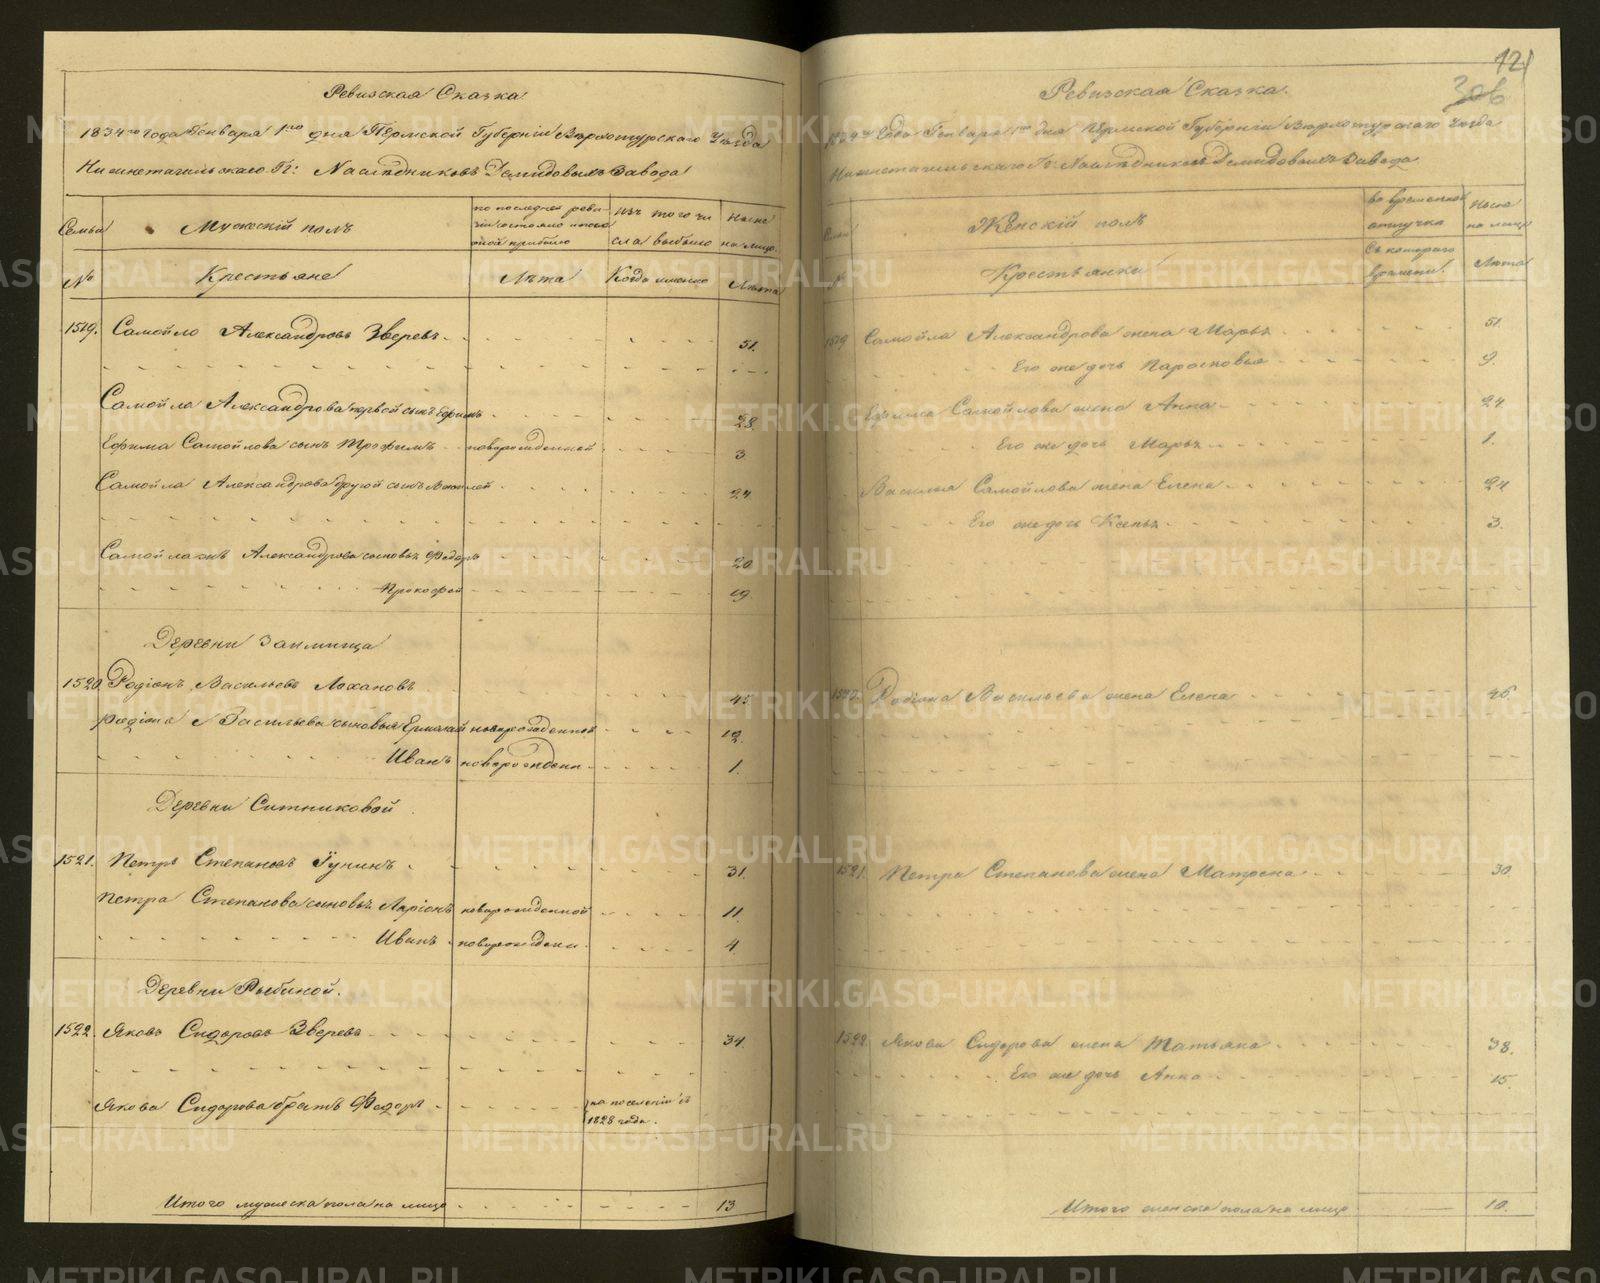 Ревизская Сказка
1834го года Генваря 1го дня Пермской Губернiи Верхотурскаго Уезда
Нижнетагильскаго Гг: Наследниковъ Демидовыхъ Завода
Семьи
Мужескiй полъ
по последней реви-
зiи состояло и после
оной прибыло
Изъ того чи
сла выбыло
Ныне
на лицо.
№
Крестьяне
Лета
Когда именно
Лета
1519. Самойло Александровъ Зверевъ 51.
Самойла Александрова первой сынъ Ефимъ 28.
Ефима Самойлова сынъ Трофимъ новорожденной 3
Самойла Александрова другой сынъ Василей 24
Самойла жъ Александрова сыновья Федоръ 20
Прокофей 19.
Деревни Заимища
1520. Родiонъ Васильевъ Лохановъ 45.
Родiона Васильева сыновья Ермолай новорожденной 12.
Иванъ новорожден. 1.
Деревни Ситниковой
1521. Петръ Степановъ Гунинъ 31.
Петра Степанова сыновья Ларiонъ новорожденной 11.
Иванъ новорожден. 4.
Деревни Рыбиной.
1522. Яковъ Сидоровъ Зверевъ 34.
Якова Сидорова братъ Федоръ на поселенiи съ
1828 года.
Итого мужеска пола на лицо 13
121
306
Ревизская Сказка.
1834го Года Генваря 1го дня Пермской Губернiи Верхотурскаго Уезда
Нижнетагильскаго Гг: Наследниковъ Демидовыхъ Завода
Семьи
Женскiй полъ
во временной
отлучке
Ныне
на лицо
№
Крестьянки
Съ котораго
времени.
Лета
1519 Самойла Александрова жена Марья 51.
Его же дочь Парасковья 9.
Ефима Самойлова жена Анна 24
Его же дочь Марья 1.
Василья Самойлова жена Елена 24
Его же дочь Ксенья 3.
1520. Родiона Васильева жена Елена 46.
1521. Петра Степанова жена Матрена 30
1522 Якова Сидорова жена Татьяна 38.
Его же дочь Анна 15.
Итого женска пола на лицо 10.
METRIKI.GASO-URAL.RU